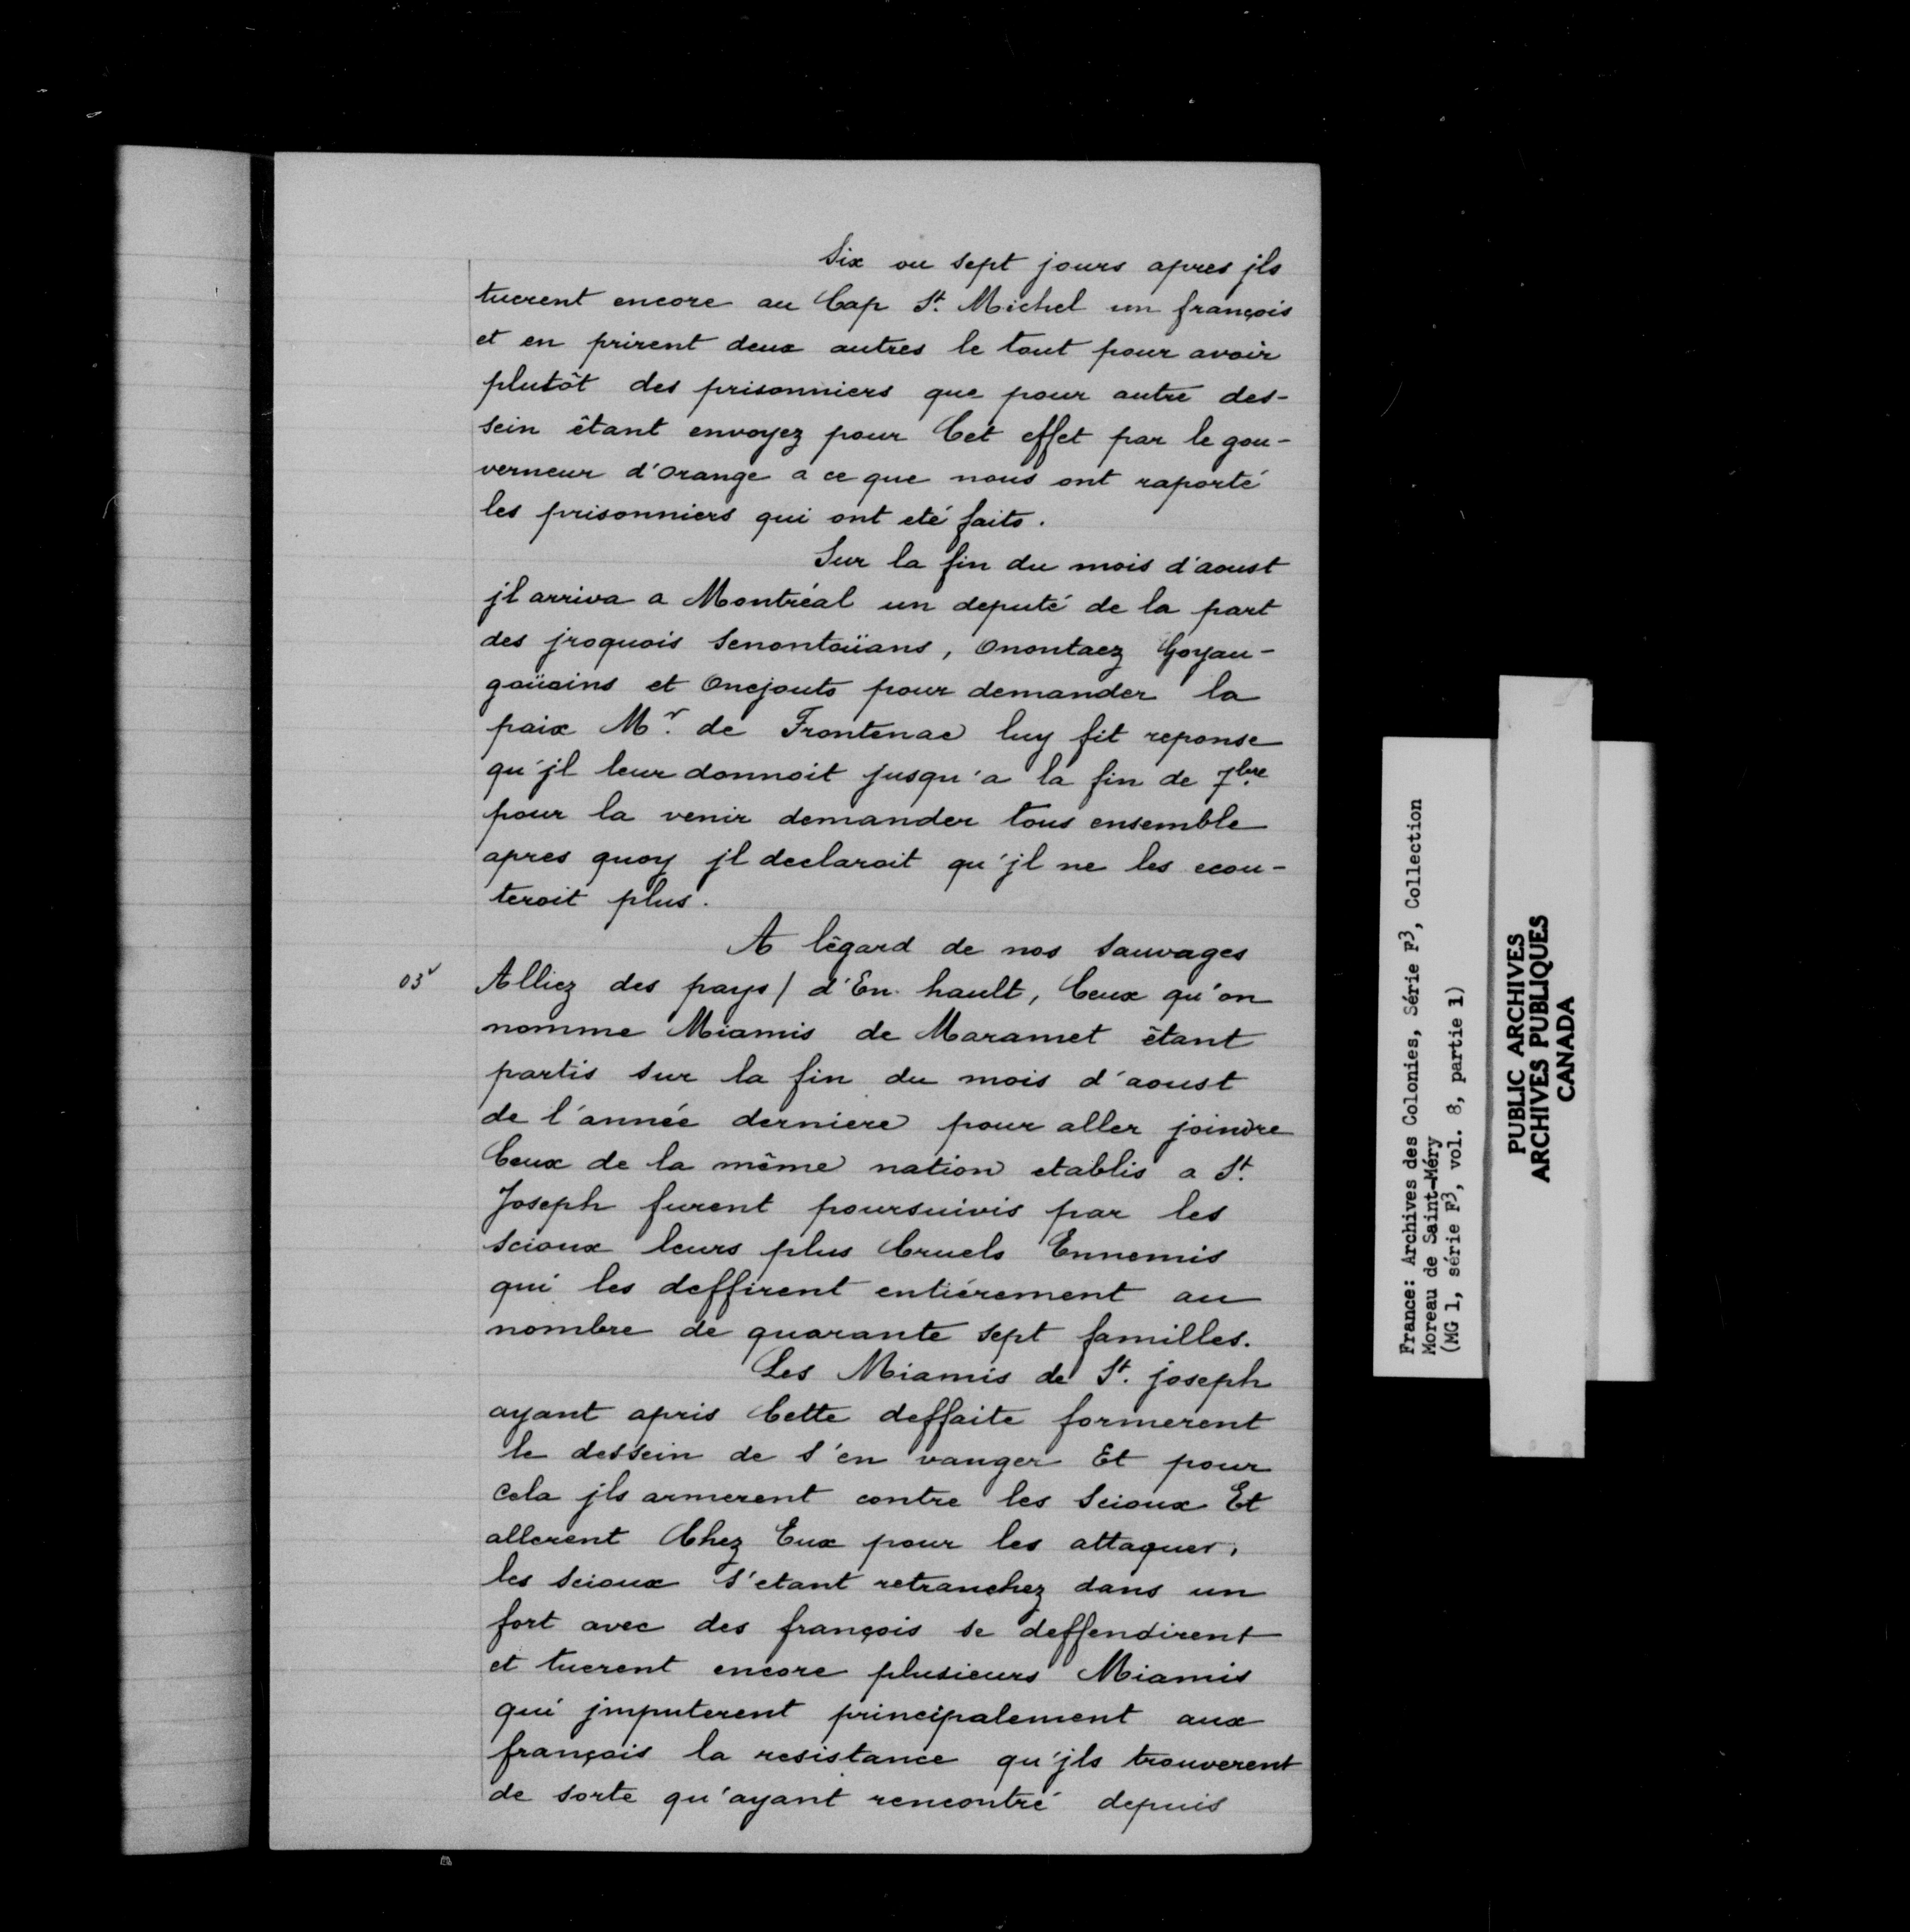 Six ou sept jours apres jls
tuerent encore au Cap St. Michel un françois
et en prirent deux autres le tout pour avoir
plutôt des prisonniers que pour autre des-
sein êtant envoyez pour Cet effet par le gou-
verneur d'Orange a ce que nous ont raporté
les prisonniers qui ont eté faits.
Sur la fin du mois d'aoust
jl arriva a Montréal un deputé de la part
des jroquois Senontoüans, Onontaez Goyau-
goüains et Onejouts pour demander la
paix Mr. de Frontenac luy fit reponse
qu'jl leur donnoit jusqu'a la fin de 7bre
pour la venir demander tous ensemble
apres quoy jl declaroit qu'jl ne les ecou-
teroit plus.
A lêgard de nos Sauvages
03v Alliez des pays / d'En hault, Ceux qu'on
nomme Miamis de Maramet êtant
partis sur la fin du mois d'aoust
de l'année derniere pour aller joindre
Ceux de la même nation etablis a St.
Joseph furent poursuivis par les
scioux leurs plus Cruels Ennemis
qui les deffirent entiérement au
nombre de quarante sept familles.
Les Miamis de St. joseph
ayant apris Cette deffaite formerent
le dessein de s'en vanger Et pour
cela jls armerent contre les Scioux Et
allerent Chez Eux pour les attaquer,
les scioux s'etant retranchez dans un
fort avec des françois se deffendirent
et tuerent encore plusieurs Miamis
qui jmputerent principalement aux
français la resistance qu'jls trouverent
de sorte qu'ayant rencontré depuis
France: Archives des Colonies, Série F3, Collection
Moreau de Saint-Méry
(MG 1, série F3, vol. 8, partie 1)
PUBLIC ARCHIVES
ARCHIVES PUBLIQUES
CANADA